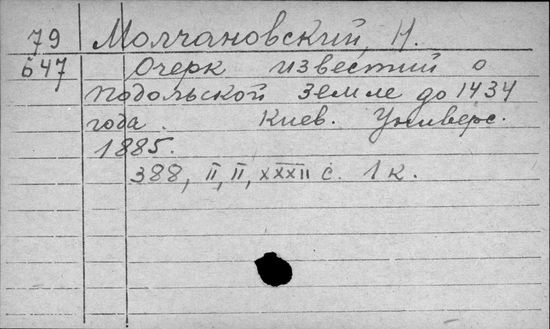 79 Молчановский, Н.
647 Очерк известий о
подольской земле до 1434
года. Киев. Универс.
1885.
388, II, II, XXXII с. 1 к.